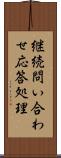 継続問い合わ
せ応答処理